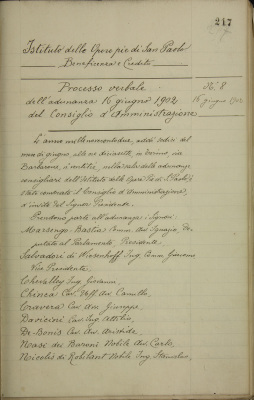 217
Istituto delle Opere pie di San Paolo
Beneficenza e Credito
Processo verbale
dell'adunanza 16 giugno 1902
del Consiglio d'Amministrazione
No. 8
16 giugno 1902
L'anno millenovecentodue, addì sedici del
mese di giugno, alle ore diciasette, in Torino, via
Barbaroux, nella sala delle adunanze
consigliari dell'Istituto delle Opere Pie di S. Paolo, è
stato convocato il Consiglio d'Amministrazione,
d'invito del Signor Presidente.
Prendono parte all'adunanza i Signori:
Marsengo Bastia Comm. Avv. Ignazio, De-
putato al Parlamento, Presidente.
Salvadori di Wiesenhoff Ing. Comm. Giacomo
Vice Presidente.
Chevalley Ing. Giovanni,
Chiora Cav. Uff. Avv. Camillo,
Cravera Cav. Avv. Giuseppe
Davicini Cav. Ing. Attilio,
De-Bonis Cav. Avv. Aristide,
Nasi dei Baroni Nobile Avv. Carlo,
Nicolis di Robilant Nobile Ing. Stanislao,